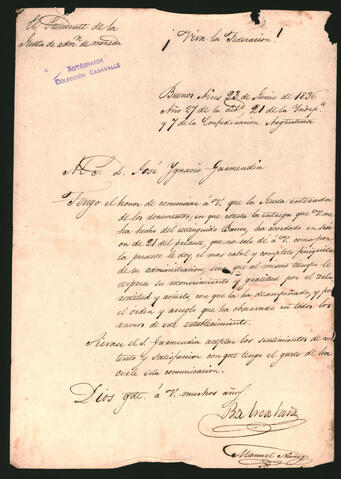 El Presidente de la
Junta de admn. de moneda
AUTÓGRAFOS
COLECCIÓN CASAVALLE
¡Viva la Federacion!
Buenos Aires 22 de Junio de 1836
Año 27 de la Lib.d, 21 de la Indep.a
y 7 de la Confederacion Argentina
A S. D. José Ygnacio Garmendia
Tengo el honor de comunicar á V. que la Junta enterada
de los documentos, en que consta la entrega que V. me
ha hecho del extinguido Banco, ha acordado en
de 21 del que no solo dé á V. como por
la presente le doy, el mas cabal y completo finiquito
de su administracion, sino que al mismo tiempo le
exprese su reconocimiento y gratitud por el zelo
y acierto, con que la ha desempeñado, y por
el orden y arreglo que ha observado en todos los
ramos de este establecimiento.
Sirvase el S. Garmendia aceptar los sentimientos de con-
tento y satisfaccion con que tengo el gusto de ha-
cerle esta comunicacion.
Dios gde. á V. muchos años
Manuel Nuñez